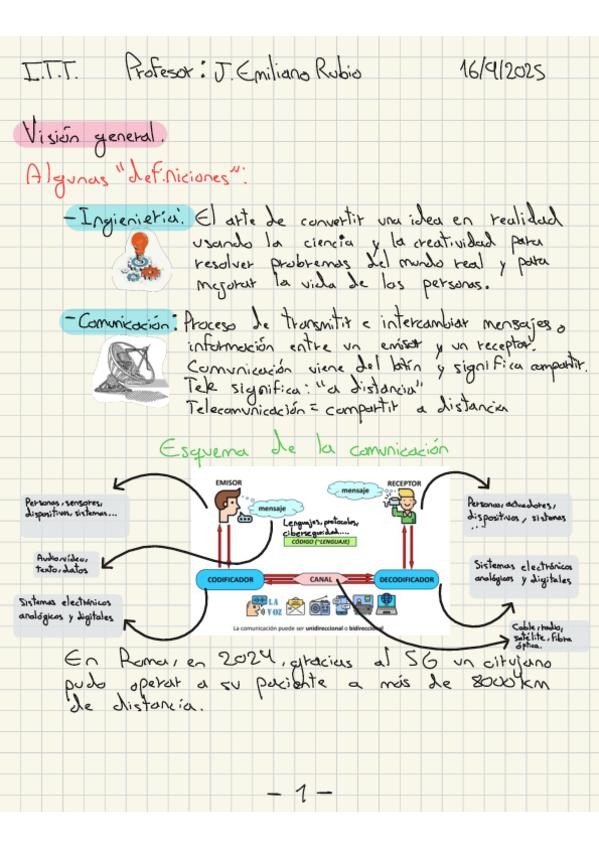 I.T.T. Profesor: J. Emiliano Rubio 16/9/2025
Visión general.
Algunas "definiciones":
- Ingienieria: El arte de convertir una idea en realidad
usando la ciencia y la creatividad para
resolver problemas del mundo real y para
mejorar la vida de las personas.
- Comunicación: Proceso de transmitir e intercambiar mensajes o
información entre un emisor y un receptor.
Comunicación viene del latín y significa compartir.
Tele significa: "a distancia"
Telecomunicación = compartir a distancia
Esquema de la comunicación
EMISOR
mensaje
mensaje
RECEPTOR
Personas, sensores,
dispositivos, sistemas...
Personas, actuadores,
dispositivos, sistemas
...
Lenguajes, protocolos,
ciberseguridad....
CÓDIGO (~LENGUAJE)
Audio, vídeo,
texto, datos
CODIFICADOR
CANAL
DECODIFICADOR
Sistemas electrónicos
analógicos y digitales
Sistemas electrónicos
analógicos y digitales
LA
VOZ
La comunicación puede ser unidireccional o bidireccional
Cable, radio,
satélite, fibra
óptica.
En Roma, en 2024, gracias al 5G un cirujano
pudo operar a su paciente a más de 8000 km
de distancia.
- 1 -